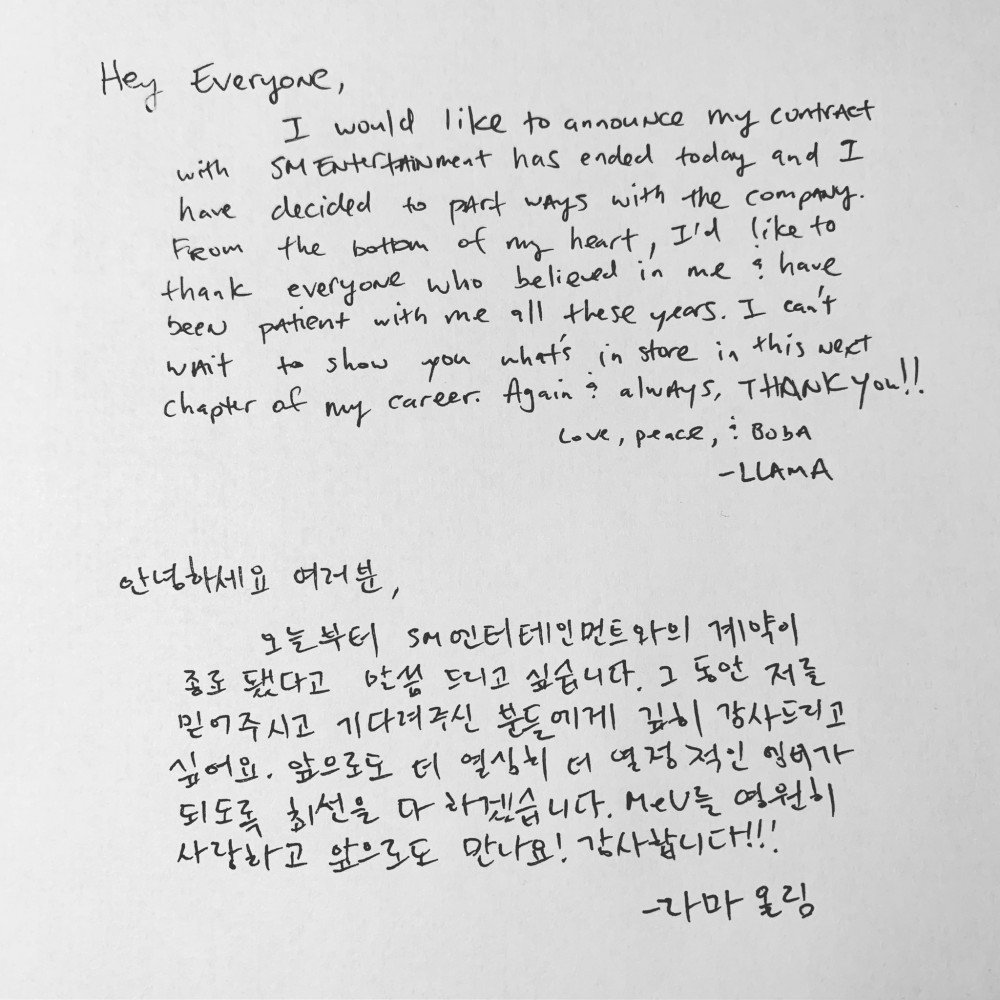 Hey Everyone,
I would like to announce my contract
with SM Entertainment has ended today and I
have decided to part ways with the company.
From the bottom of my heart, I'd like to
thank everyone who believed in me & have
been patient with me all these years. I can't
wait to show you what's in store in this next
chapter of my career. Again & always, THANK YOU!!
Love, peace, & BOBA
-LLAMA
안녕하세요 여러분,
오늘부터 SM엔터테인먼트와의 계약이
종로 됐다고 말씀 드리고 싶습니다. 그 동안 저를
믿어주시고 기다려주신 분들에게 깊히 감사드리고
싶어요. 앞으로도 더 열심히 더 열정적인 엠버가
되도록 최선을 다 하겠습니다. MeU를 영원히
사랑하고 앞으로도 만나요! 감사합니다!!!
-라마 올림